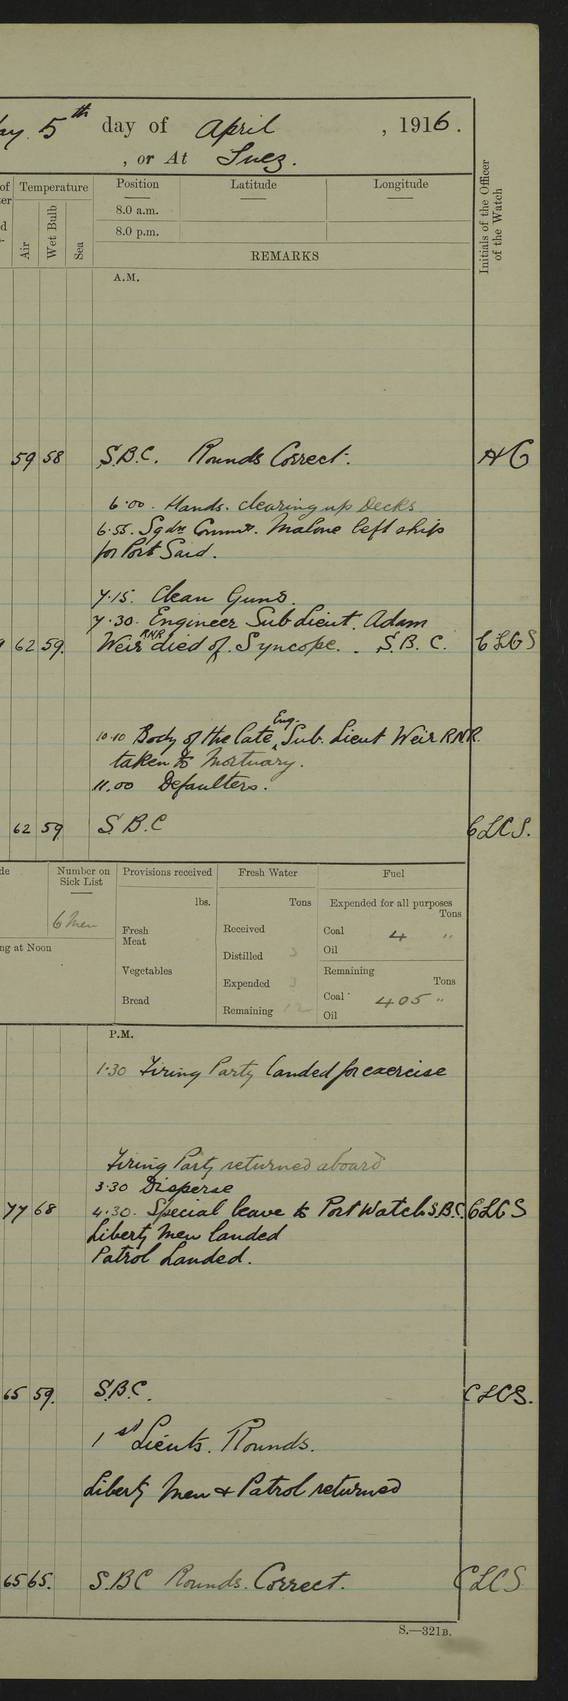 5th day of April, 1916.
, or At Suez.
Temperature
Air
Wet Bulb
Sea
Position
Latitude
Longitude
8.0 a.m.
8.0 p.m.
Initials of the Officer of the Watch
REMARKS
A.M.
59 58 S.B.C. Rounds Correct. HG
6.00. Hands. clearing up Decks
6.55. Sqdn Commr. Malone left ship
for Port Said.
7.15. Clean Guns.
7.30. Engineer Sub Lieut. Adam
62 59. Weir RNR died of Syncope. . S.B.C. CLCS
10.10 Body of the late Eng. Sub. Lieut Weir RNR
taken to Mortuary.
11.00 Defaulters.
62 59 S B C CLCS.
Number on Sick List
6 Men
ng at Noon
Provisions received
lbs.
Fresh Meat
Vegetables
Bread
Fresh Water
Tons
Received
Distilled 3
Expended 3
Remaining 12
Fuel
Expended for all purposes
Tons
Coal 4 "
Oil
Remaining
Tons
Coal 405 "
Oil
P.M.
1.30 Firing Party landed for exercise
Firing Party returned aboard
3.30 Disperse
77 68 4.30. Special leave to Port Watch S.B.C. CLCS
Liberty Men landed
Patrol Landed.
65 59. S.B.C. CLCS.
1st Lieuts. Rounds.
Liberty Men & Patrol returned
65 65. S.B.C Rounds. Correct. CLCS
S.—321B.